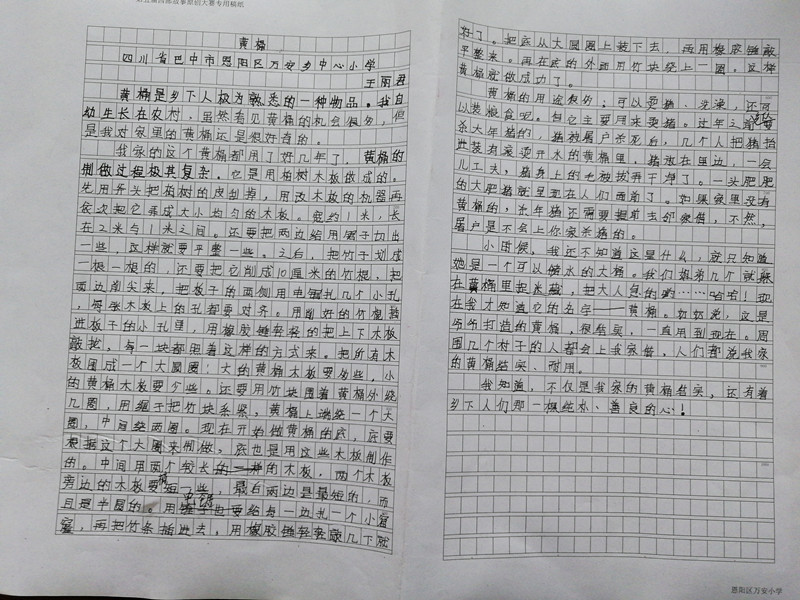 黄桶
四川省巴中市恩阳区万安乡中心小学
王丽君
黄桶是乡下人极为熟悉的一种物品。我自
幼生长在农村，虽然看见黄桶的机会很多，但
是我对家里的黄桶还是很好奇的。
我家的这个黄桶都用了好几年了，黄桶的
制做过程极其复杂。它是用柏树木板做成的。
先用斧头把柏树的皮刮掉，用改木板的机器再
依次把它弄成大小均匀的木板。宽约1米，长
在2米与1米之间。还要把两边给用锯子切出
一些，这样就要平整一些。之后，把竹子划成
一根一根的，还要把它削成10厘米的竹棍，把
两边削尖来，把板子的两侧用电钻扎几个小孔
，每张木板上的孔都要对齐。用削好的竹棍装
进板子的小孔里，用橡胶锤轻轻的把上下木板
敲拢，每一块都用着这样的方式来。把所有木
板围成一个大圆圈；大的黄桶木板要多些，小
的黄桶木板要少些。还要用竹块围着黄桶外绕
几圈，用绳子把竹块系紧，黄桶上端绕一个大
圈，中间绕两圈。现在开始做黄桶的底，底要
根据这个大圈来制做。底也是用这些木板制作
的。中间用两个较长的木板，两个木板
旁边的木板要稍短一些，最后两边是最短的，而
且是半圆的。用电钻也要给每一边扎一个小窟
窿，再把竹条插进去，用橡胶锤轻轻敲几下就
好了。把底从大圆圈上装下去，再用橡胶锤敲
平整来。再在底的外面用竹块绕上一圈，这样
黄桶就做成功了。
黄桶的用途很多；可以烫猪、洗澡，还可
以装粮食呢。但它主要用来烫猪。过年之前要
杀大年猪的，猪被屠户杀死后，几个人把猪抬
进装有滚烫开水的黄桶里，猪放在里边，一会
儿工夫，猪身上的毛被拔得干干净了。一头肥肥
的大肥猪就呈现在人们面前了。如果家里没有
黄桶的，杀年猪还需要提前去邻家借，不然，
屠户是不会上你家杀猪的。
小时候，我还不知道这是什么，就只知道
她是一个可以储水的大桶。我们姐弟几个就躲
在黄桶里捉迷藏，把大人急的哟……哈哈！现
在我才知道它的名字——黄桶。奶奶说，这是
爷爷打造的黄桶，很结实，一直用到现在。周
围几个村子的人都会上我家借，人们都说我家
的黄桶结实、耐用。
我知道，不仅是我家的黄桶结实，还有着
乡下人们那一棵纯朴、善良的心！
恩阳区万安小学